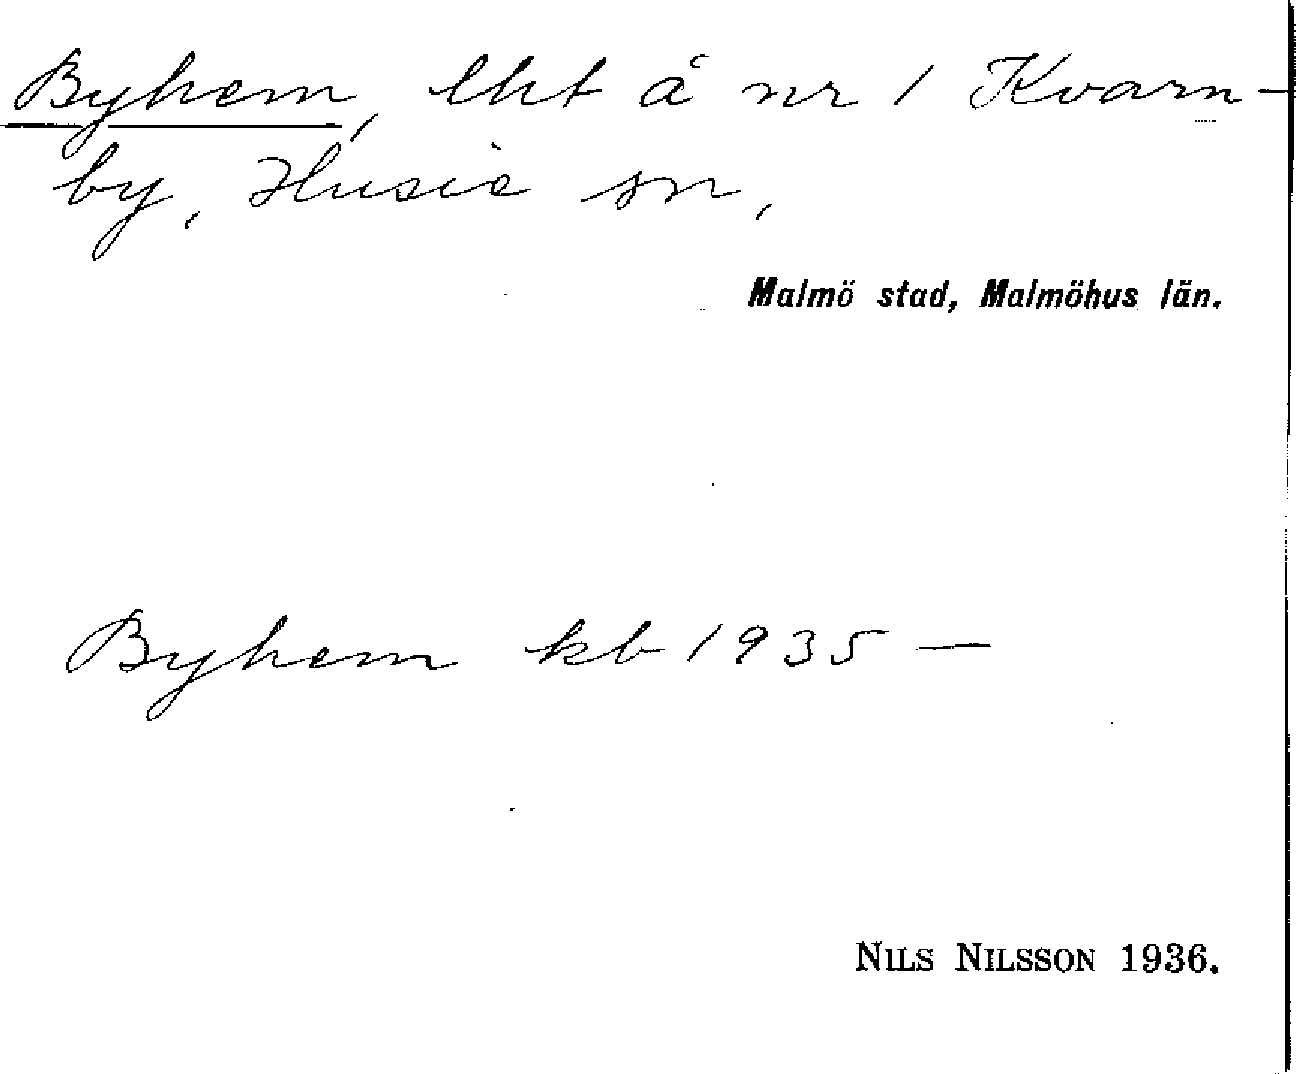 Byhem, lht å nr 1 Kvarn-
by, Husie sn,
Malmö stad, Malmöhus län.
Byhem kb 1935 —
NILS NILSSON 1936.